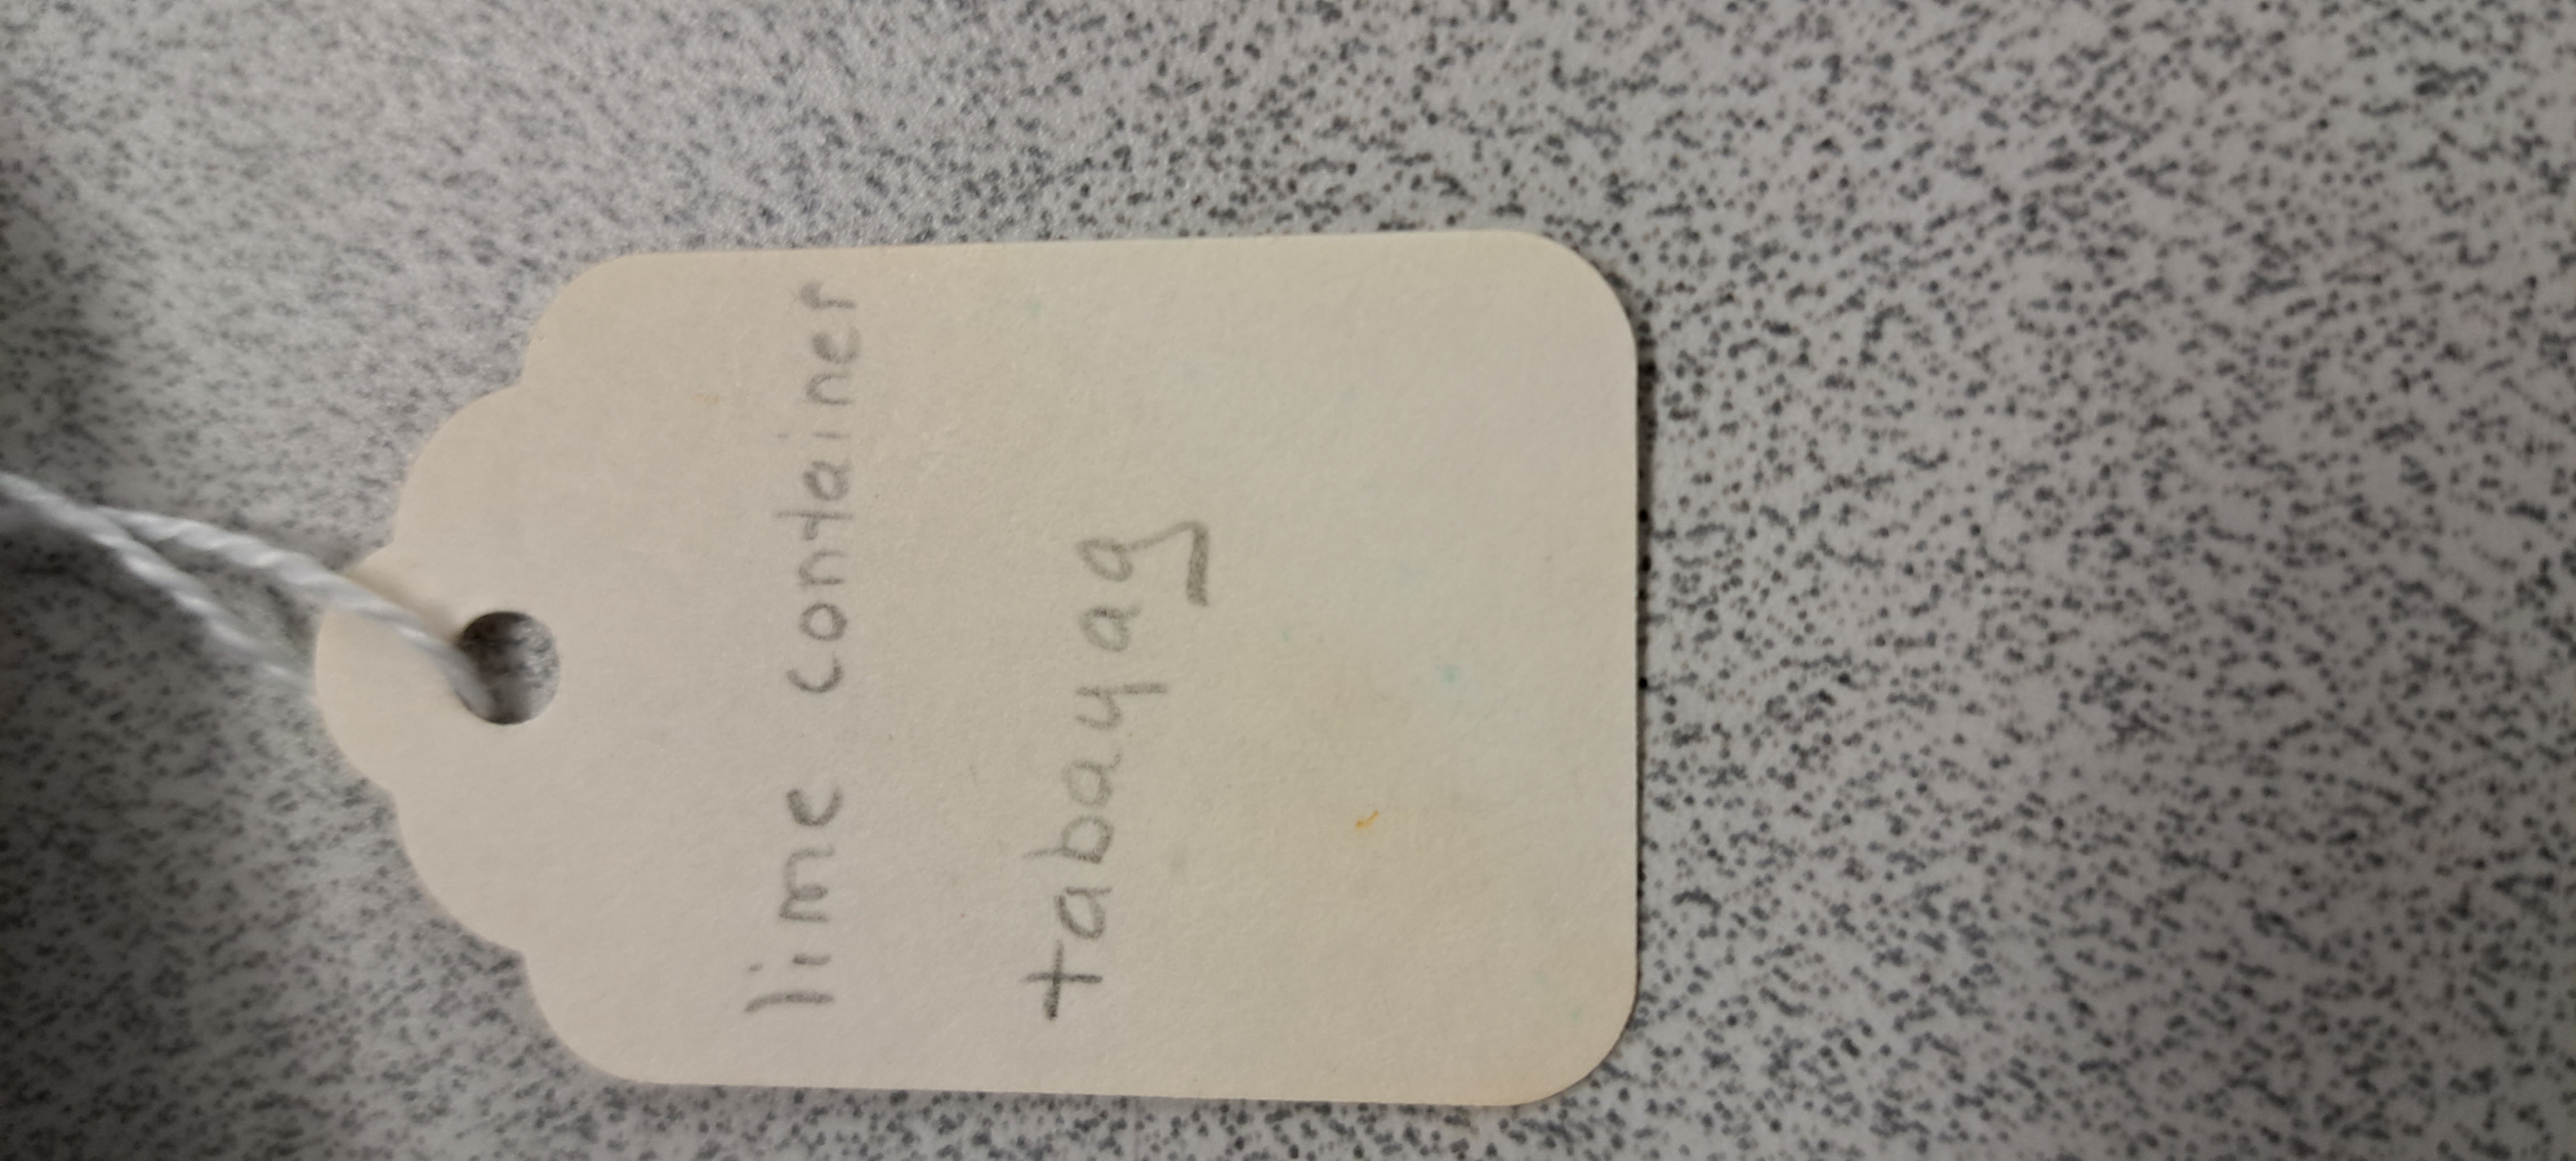 lime container
tabayag